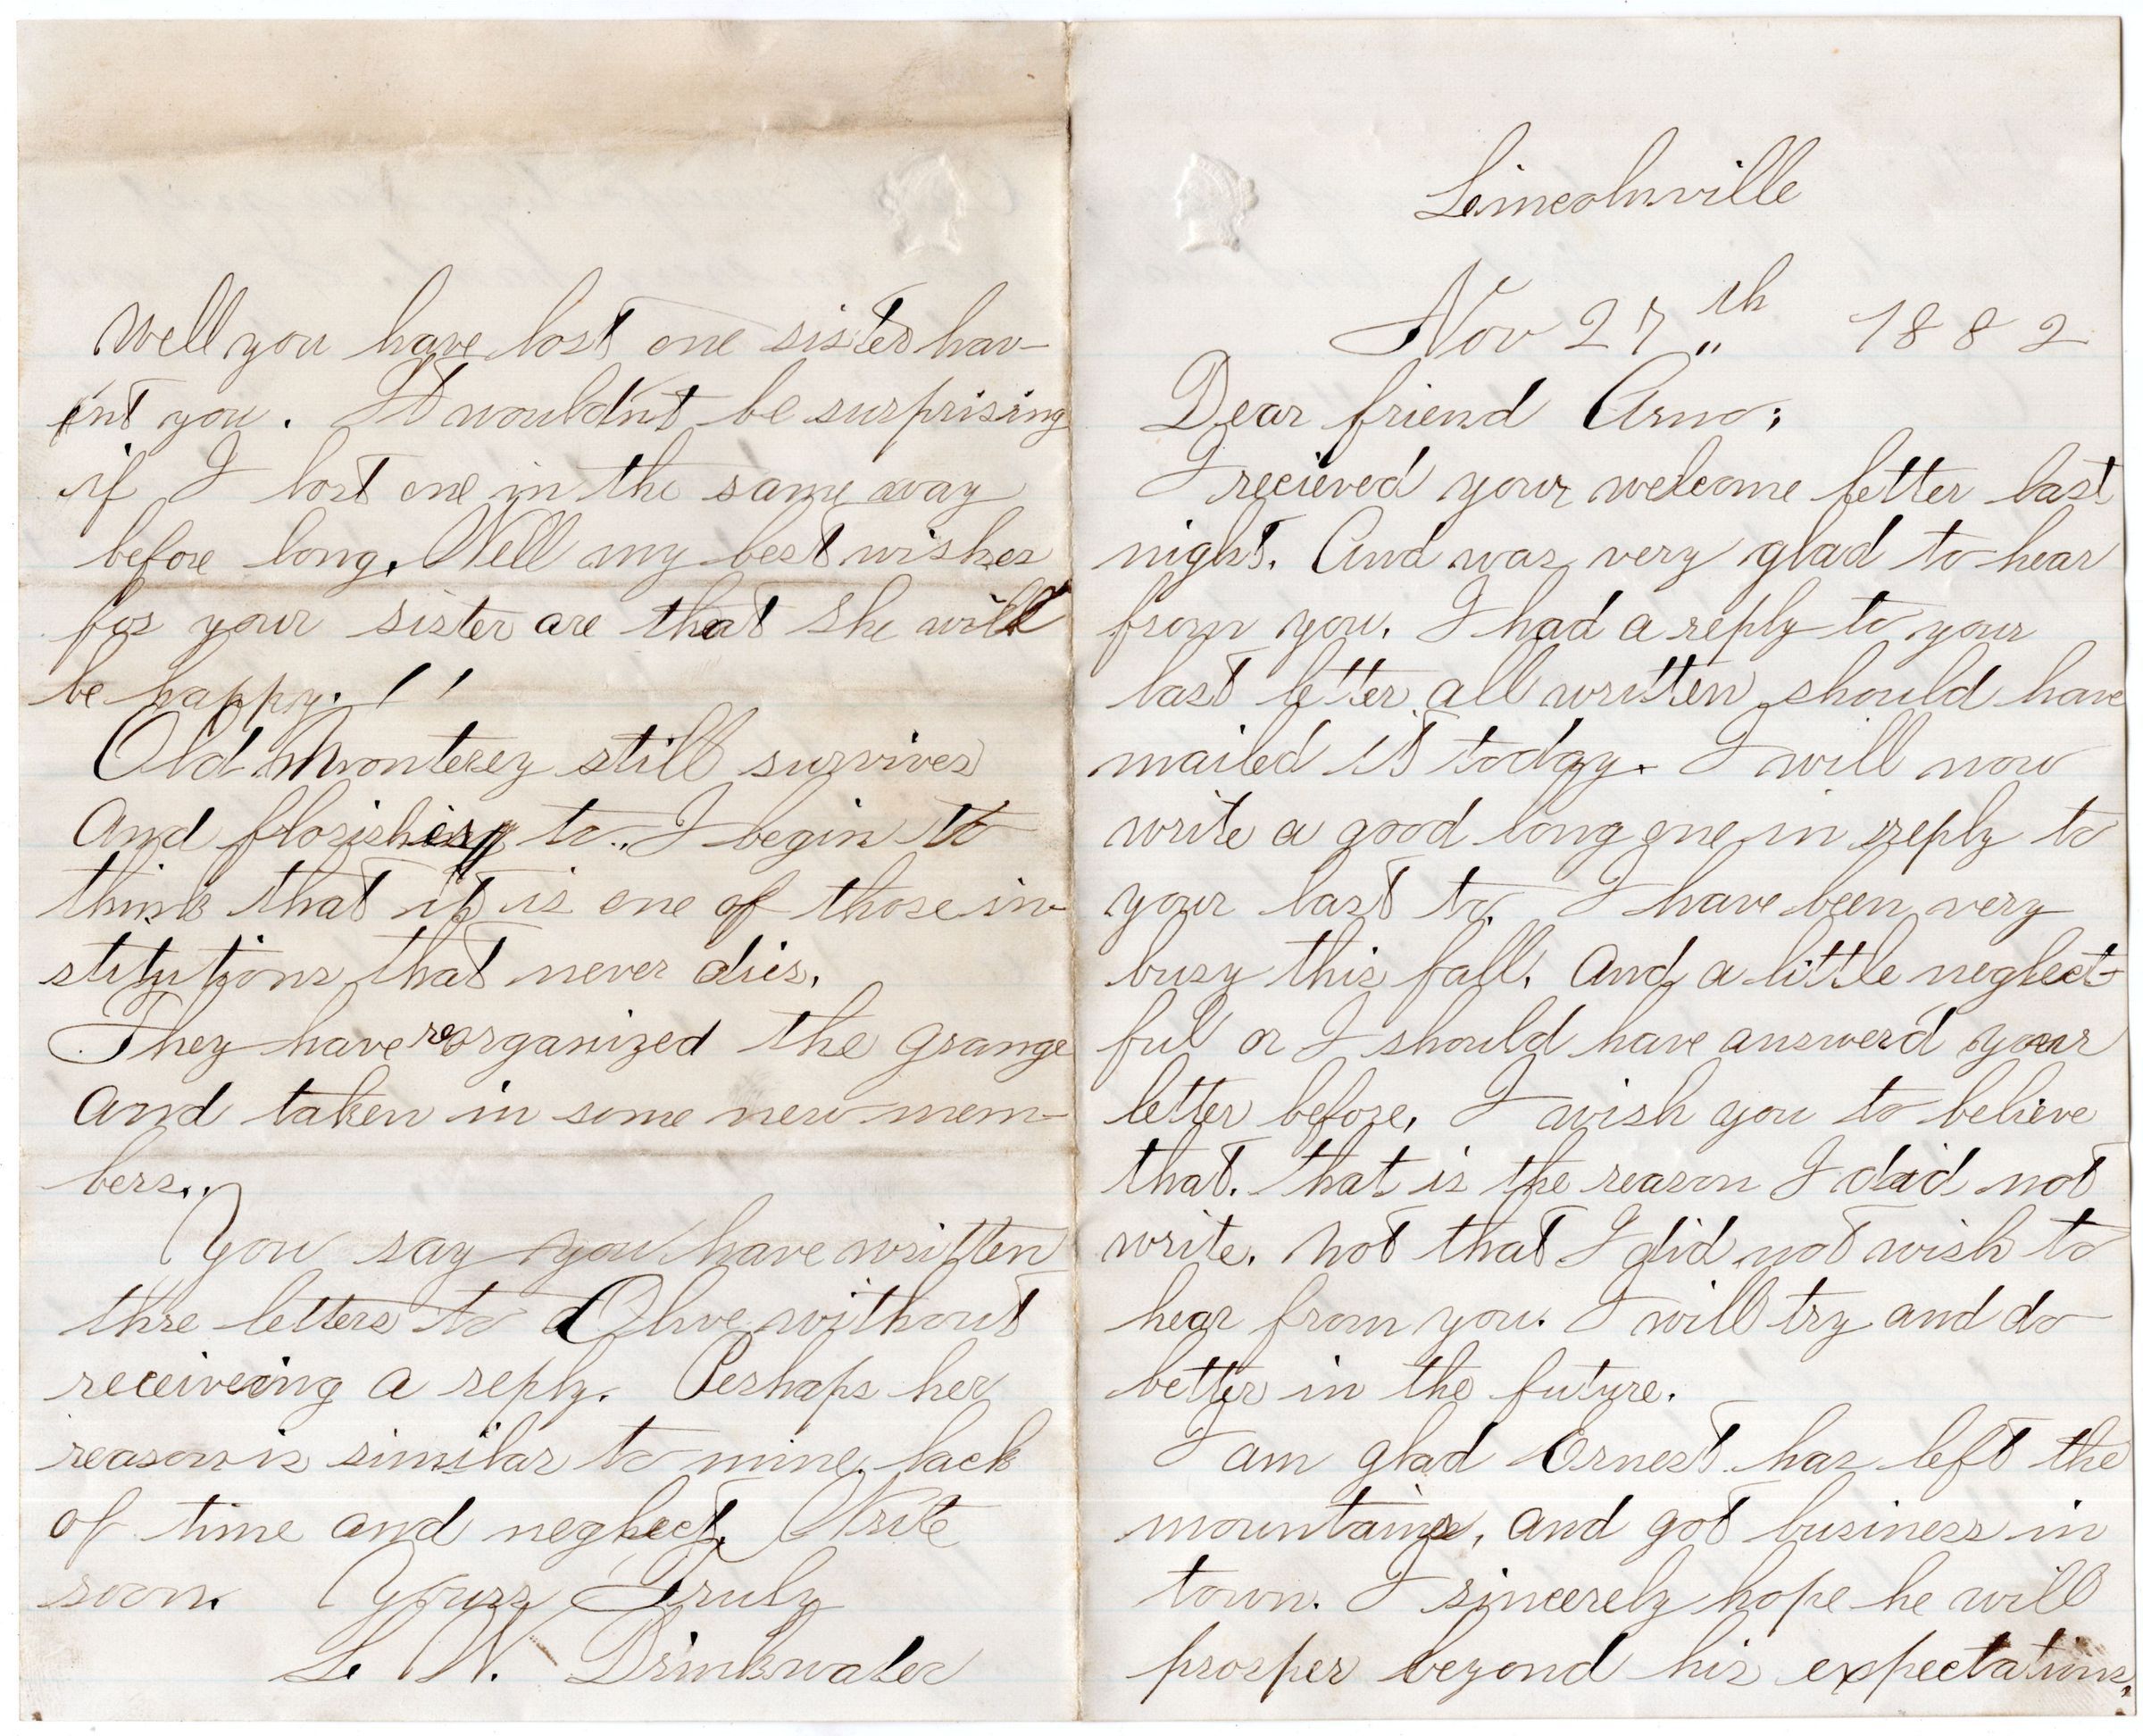 Lincolnville
Nov 27th 1882
Dear friend Arno;
I recieved your welcome letter last
night. And was very glad to hear
from you. I had a reply to your
last letter all written should have
mailed it today. I will now
write a good long one in reply to
your last to. I have been very
busy this fall. And a little neglect-
ful or I should have answerd your
letter before, I wish you to believe
that. that is the reason I did not
write. not that I did not wish to
hear from you. I will try and do
better in the future.
I am glad Ernest has left the
mountains, and got business in
town. I sincerely hope he will
prosper beyond his expectations.
Well you have lost one sister hav-
ent you. It wouldn't be surprising
if I lost one in the same way
before long. Well my best wishes
for your sister are that she will
be happy. !!
Old Monterey still survives
And florishing to.. I begin to
think that it is one of those in-
stitutions that never dies.
They have reorganized the grange
And taken in some new mem-
bers..
You say you have written
thre letters to Olive without
receiveing a reply. Perhaps her
reason is similar to mine, lack
of time and neglect. Write
soon. Yours Truly
L. W. Drinkwater